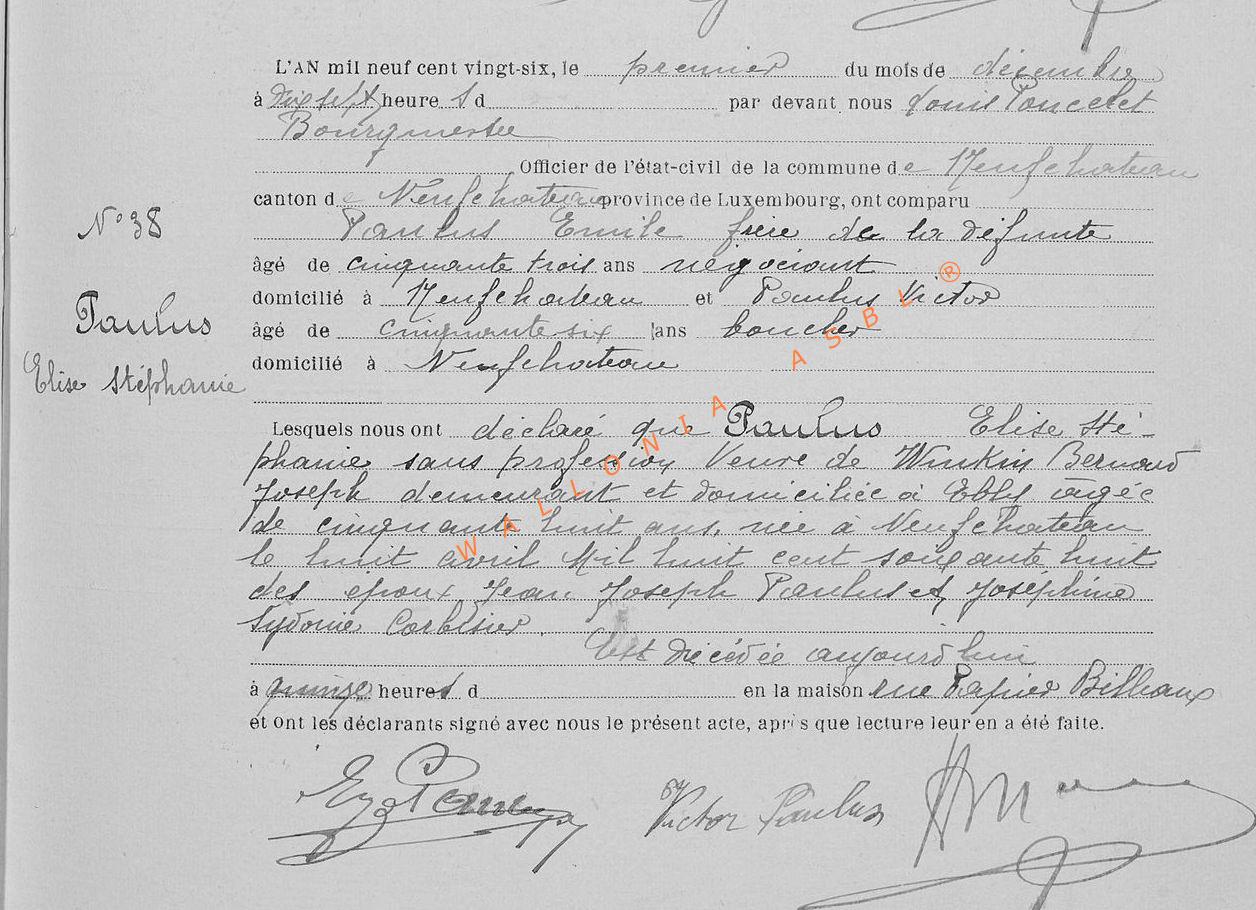 L'AN mil neuf cent vingt-six, le premier du mois de décembre
à dix sept heure s d par devant nous Louis Poncelet
Bourgmestre
Officier de l'état-civil de la commune de Neufchateau
canton de Neufchateau province de Luxembourg, ont comparu
N° 38
Paulus Emile frère de la défunte
âgé de cinquante trois ans négociant
domicilié à Neufchateau et Paulus Victor
Paulus
âgé de cinquante-six ans boucher
domicilié à Neufchateau
Elise Stéphanie
Lesquels nous ont déclaré que Paulus Elise Sté-
phanie sans profession Veuve de Winkin Bernard
Joseph demeurant et domiciliée à Ebly âgée
de cinquante huit ans, née à Neufchateau
le huit avril Mil huit cent soixante huit
des époux Jean Joseph Paulus et Joséphine
Sydonie Corbisier.
Est décédée aujourd'hui
à quinze heures d en la maison rue Papier Billaux
et ont les déclarants signé avec nous le présent acte, après que lecture leur en a été faite.
Victor Paulus
WALLONIA ASBL ®